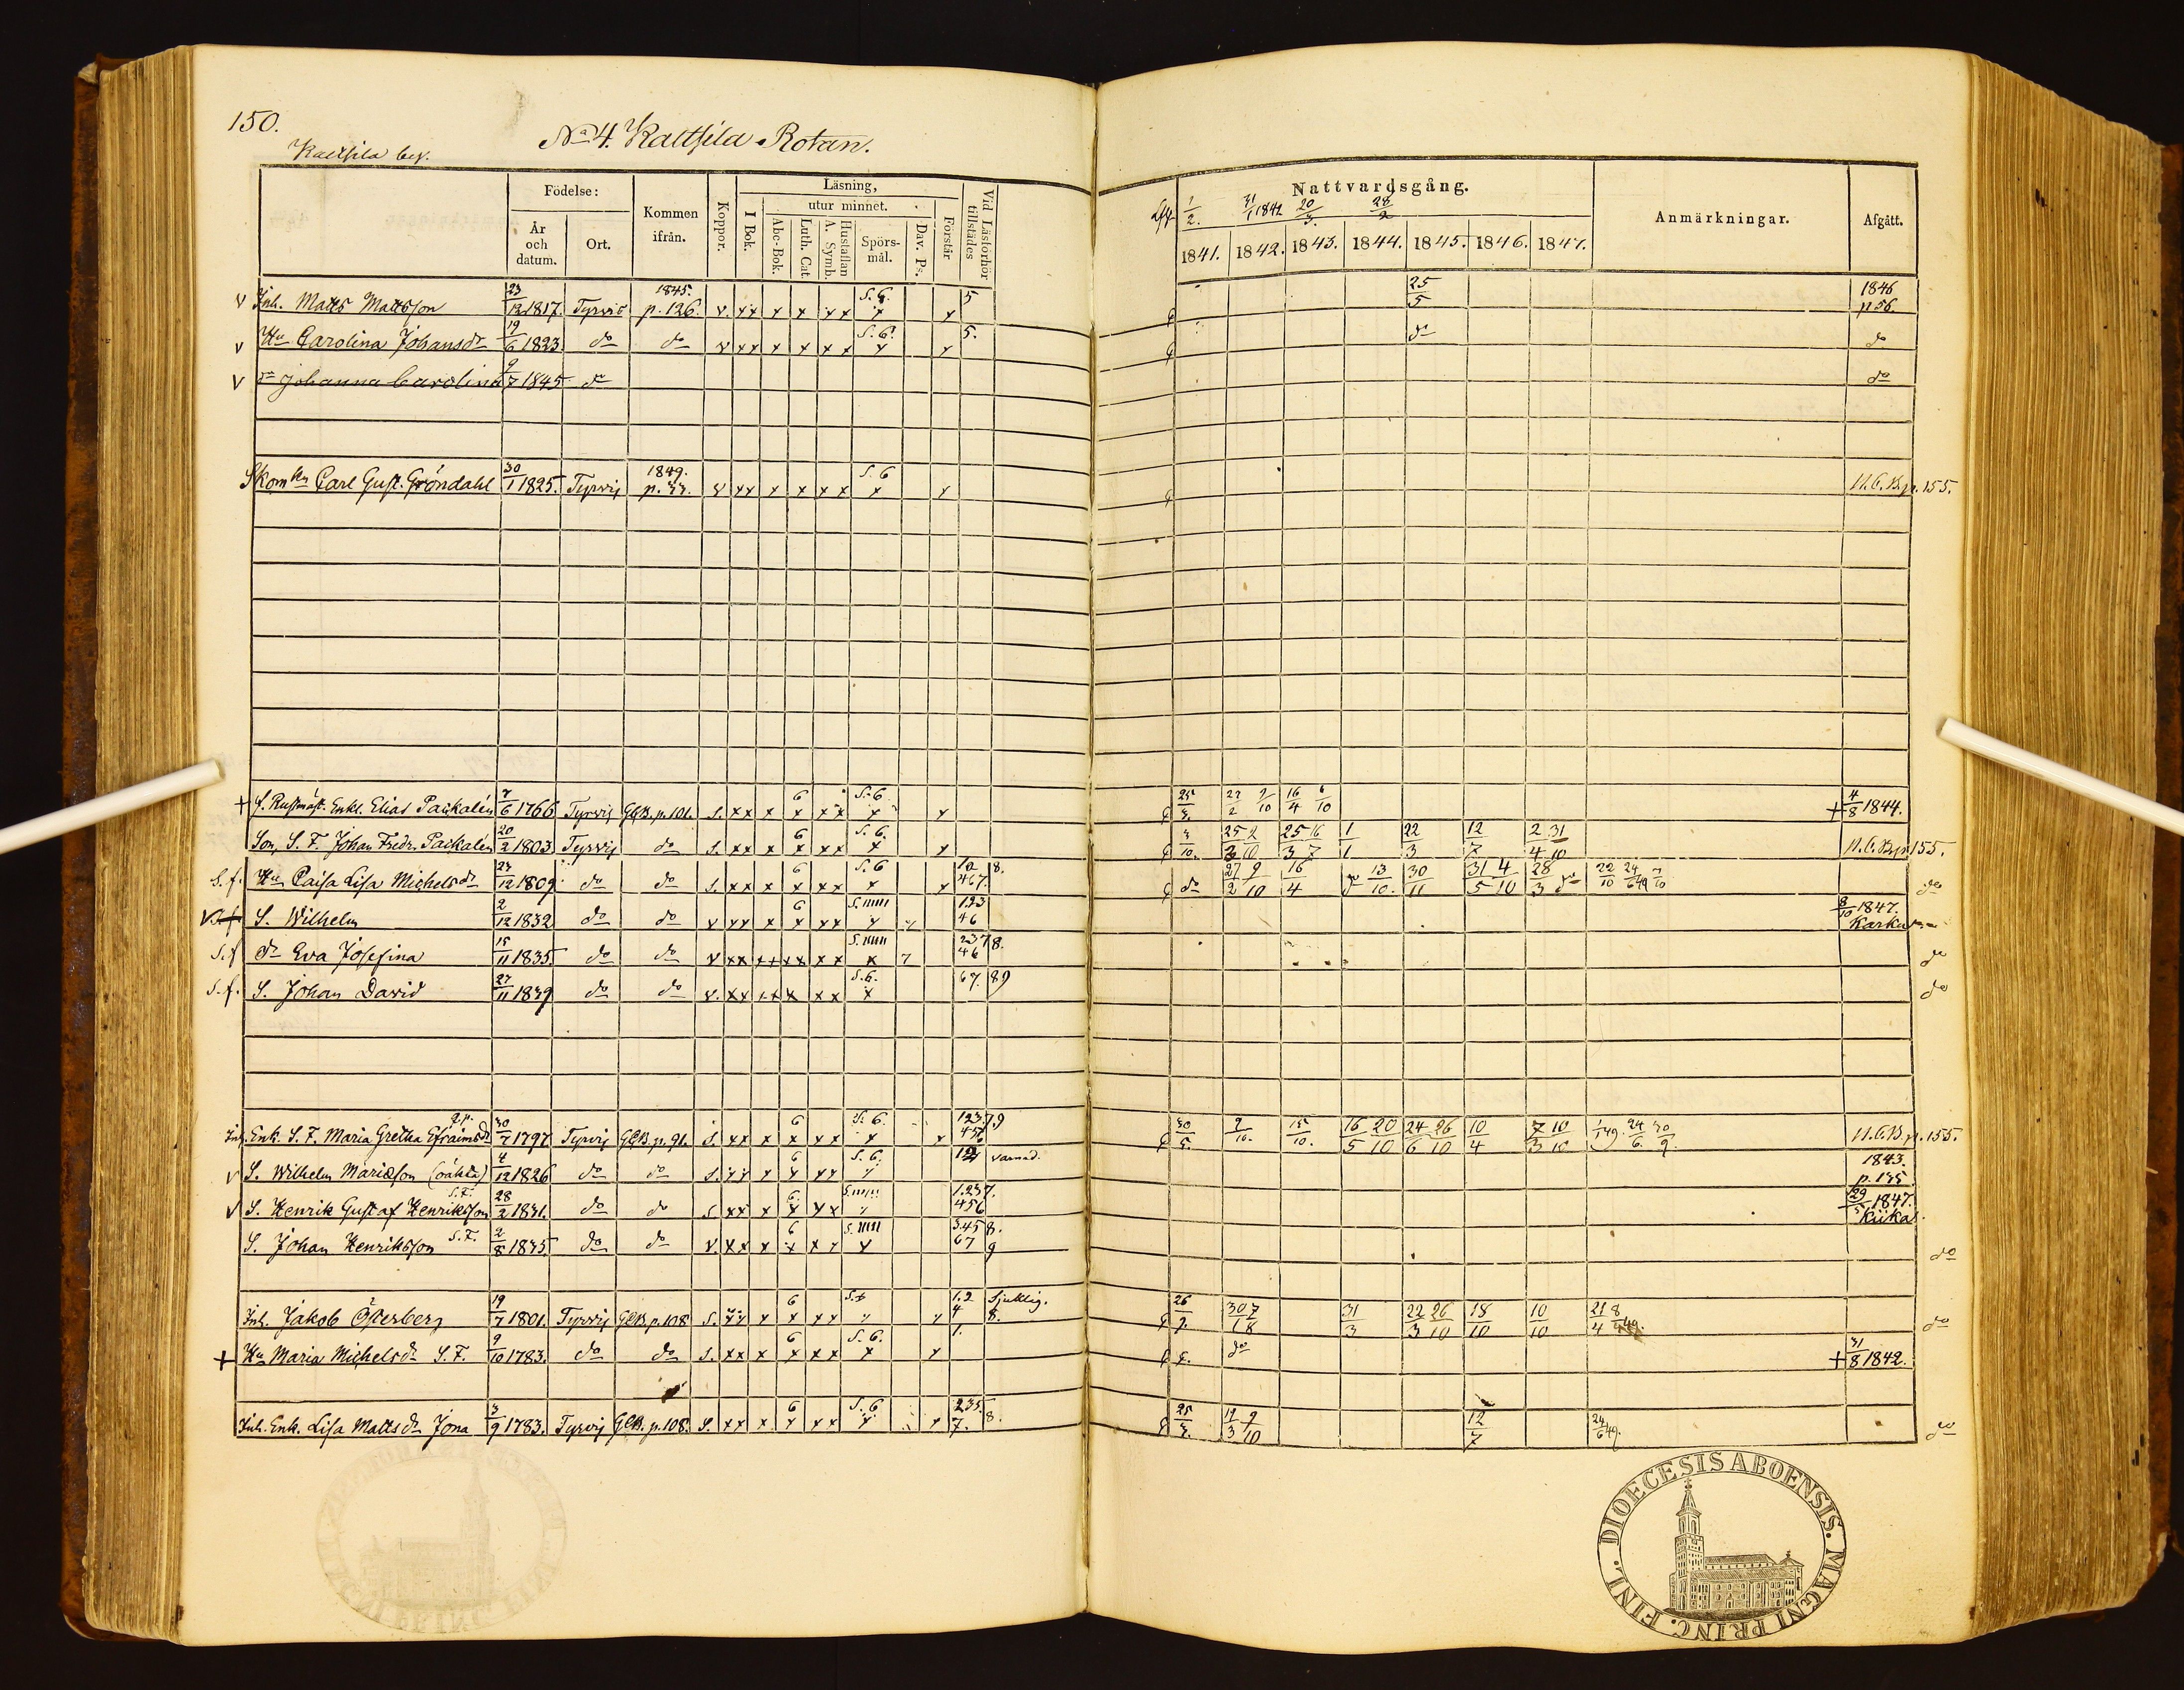 150.
No 4. Kaltsila Rotan.
Kaltsila by.
Födelse:
År och datum.
Ort.
Kommen ifrån.
Koppor.
Läsning,
I Bok.
utur minnet.
Abc-Bok.
Luth. Cat.
Hustaflan A. Symb.
Spörs-mål.
Dav. Ps.
Förstår
Vid Läsförhör tillstädes
Nattvardsgång.
1/2. 31/1 1842 20/3. 28/2
1841. 1842. 1843. 1844. 1845. 1846. 1847.
Anmärkningar.
Afgått.
v Inh. Matts Mattsson 23/12 1817. Tyrvis 1845. p. 126. v. xx x x xx S. 6. x x 5 25/5 1846 p. 56.
v Hu Carolina Johansdr 19/6 1823 do do v xx x x x x S. 6. x x 5. do do
v dr Johanna Carolina 9/7 1845 do do
Skom Carl Gust. Gröndahl 30/1 1825. Tyrvis 1849. v xx x x x x S. 6 x x N.C.B. p. 155.
+ f. Rustmäst. Enkl. Elias Paikalén 7/6 1766 Tyrvis GCB. p. 101. S. xx x 6 x xx S. 6 x x 25/3. 16/4 6/10 + 4/8 1844.
Son, S. F. Johan Fredr. Paikalén 20/2 1803 Tyrvis do S. xx x 6 x xx S. 6. x x 3/10. 25/3 2/10 25/3 16/7 1/1 22/3 12/7 2/4 31/10 N.C.B. p. 155.
S. f. Hu Caisa Lisa Michelsdr 23/12 1809 do do S. xx x 6 x xx S. 6 x x 467. 8. do 27/2 9/10 16/4 do 13/10. 30/11 31/5 4/10 28/3 do 22/10 24/6 49 7/10 do
S. Wilhelm 2/12 1832 do do v xx x 6 x xx S. x 123 46 8/10 1847. Karku
S. f dr Eva Josefina 15/11 1835. do do v xx xx xx x x S. x 7 237 8. 46 do
S. f. S. Johan David 27/11 1839 do do v. xx xx x xx S. 6. x 67. 89 do
Inh. Enk. S. F. Maria Gretha Efraimsdr 30/7 1797 Tyrvis GCB. p. 91. S. xx x 6 x xx S. 6. x x 1237 9 456 30/5. 9/10. 15/10. 16/5 20/10 24/6 26/10 10/4 7/3 10/10 1/1 49. 24/6. 30/9. N.C.B. p. 155.
v S. Wilhelm Mariæson (oäkta) 4/12 1826 do do S. xx x 6 x xx S. 6. x varnad. 1843. p. 135
v S. Henrik Gustaf Henriksson S. F. 28/2 1831. do do S xx x 6. x xx S. x 1.237. 456 1847. Kiika.
S. Johan Henriksson S. F. 2/8 1835 do do v. xx x 6 x xx S. x 345 8. 67 9 do
Inh. Jakob Österberg 19/7 1801. Tyrvis GCB. p. 108 S. xx x 6 x xx x x 1.2 4 Sjuklig. 8. 26/9. 30/1 7/8 31/3 22/3 26/10 18/10 10/10 21/4 do
+ Hu Maria Michelsdr S. F. 9/10 1783. do do S. xx x 6 x xx S. 6. x x 1. do + 31/8 1842.
Inh. Enk. Lisa Mattsdr Jona 3/9 1783. Tyrvis GCB. p. 108. S. xx x 6 x xx S. 6 x x 235. 7. 8. 25/3. 12/3 9/10 12/7 24/6 49. do
DIOECESIS ABOENSIS. MAGNI PRINC. FINL.